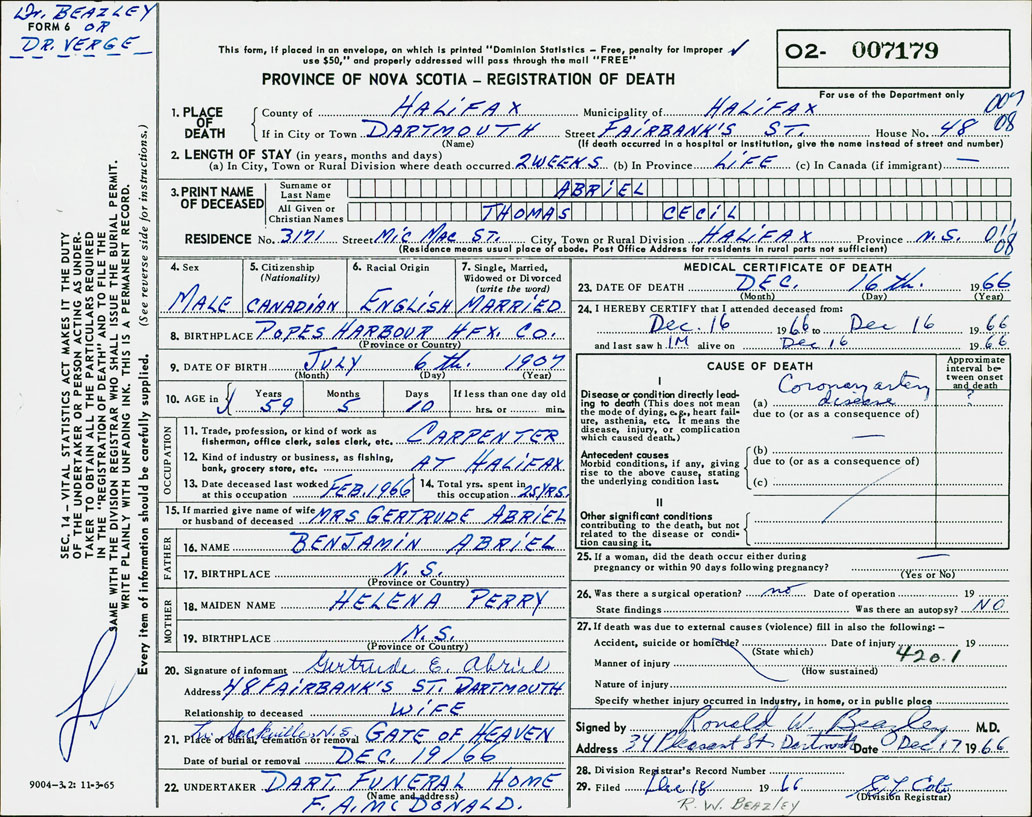 Dr. BEAZLEY
FORM 6 OR
DR. VERGE
This form, if placed in an envelope, on which is printed "Dominion Statistics – Free, penalty for improper
use $50," and properly addressed will pass through the mail "FREE"
PROVINCE OF NOVA SCOTIA – REGISTRATION OF DEATH
O2- 007179
For use of the Department only
1. PLACE OF DEATH
County of HALIFAX Municipality of HALIFAX 007
If in City or Town DARTMOUTH Street FAIRBANK'S ST. House No. 48 08
(Name) (If death occurred in a hospital or institution, give the name instead of street and number)
2. LENGTH OF STAY (in years, months and days)
(a) In City, Town or Rural Division where death occurred 2 WEEKS (b) In Province LIFE (c) In Canada (if immigrant) —
3. PRINT NAME OF DECEASED
Surname or Last Name ABRIEL
All Given or Christian Names THOMAS CECIL
RESIDENCE No. 3171 Street MIC MAC ST. City, Town or Rural Division HALIFAX Province N.S.
(Residence means usual place of abode. Post Office Address for residents in rural parts not sufficient) 08
4. Sex
MALE
5. Citizenship (Nationality)
CANADIAN
6. Racial Origin
ENGLISH
7. Single, Married, Widowed or Divorced (write the word)
MARRIED
8. BIRTHPLACE POPES HARBOUR HFX. CO.
(Province or Country)
9. DATE OF BIRTH JULY 6th. 1907
(Month) (Day) (Year)
10. AGE in Years Months Days If less than one day old
59 5 10 hrs. or min.
OCCUPATION
11. Trade, profession, or kind of work as
fisherman, office clerk, sales clerk, etc. CARPENTER
12. Kind of industry or business, as fishing,
bank, grocery store, etc. AT HALIFAX
13. Date deceased last worked at this occupation FEB. 1966
14. Total yrs. spent in this occupation 25 YRS.
15. If married give name of wife
or husband of deceased MRS GERTRUDE ABRIEL
FATHER
16. NAME BENJAMIN ABRIEL
17. BIRTHPLACE N.S.
(Province or Country)
MOTHER
18. MAIDEN NAME HELENA PERRY
19. BIRTHPLACE N.S.
(Province or Country)
20. Signature of informant Gertrude E. Abriel
Address 48 FAIRBANK'S ST. DARTMOUTH
Relationship to deceased WIFE
Sackville N.S.
21. Place of burial, cremation or removal GATE OF HEAVEN
Date of burial or removal DEC. 19/66
22. UNDERTAKER DART. FUNERAL HOME
(Name and address)
F. A. MCDONALD.
MEDICAL CERTIFICATE OF DEATH
23. DATE OF DEATH DEC. 16th. 1966
(Month) (Day) (Year)
24. I HEREBY CERTIFY that I attended deceased from:
Dec. 16 1966 to Dec 16 1966
and last saw h IM alive on Dec 16 1966
CAUSE OF DEATH
Approximate interval between onset and death
I
Disease or condition directly leading to death (This does not mean the mode of dying, e.g., heart failure, asthenia, etc. It means the disease, injury, or complication which caused death.)
(a) Coronary artery disease ?
due to (or as a consequence of)
—
Antecedent causes
Morbid conditions, if any, giving rise to the above cause, stating the underlying condition last.
(b)
due to (or as a consequence of)
(c)
II
Other significant conditions
contributing to the death, but not related to the disease or condition causing it.
25. If a woman, did the death occur either during
pregnancy or within 90 days following pregnancy? —
(Yes or No)
26. Was there a surgical operation? no Date of operation 19
State findings Was there an autopsy? NO
27. If death was due to external causes (violence) fill in also the following: –
Accident, suicide or homicide? Date of injury 19
(State which) 420.1
Manner of injury
(How sustained)
Nature of injury
Specify whether injury occurred in industry, in home, or in public place
Signed by Ronald W. Beazley M.D.
Address 34 Pleasant St Dartmouth Date Dec 17 1966
28. Division Registrar's Record Number
29. Filed Dec 18 1966
(Division Registrar)
R. W. BEAZLEY
SEC. 14 – VITAL STATISTICS ACT MAKES IT THE DUTY
OF THE UNDERTAKER OR PERSON ACTING AS UNDER-
TAKER TO OBTAIN ALL THE PARTICULARS REQUIRED
IN THE "REGISTRATION OF DEATH" AND TO FILE THE
SAME WITH THE DIVISION REGISTRAR WHO SHALL ISSUE THE BURIAL PERMIT.
WRITE PLAINLY WITH UNFADING INK. THIS IS A PERMANENT RECORD.
Every item of information should be carefully supplied. (See reverse side for instructions.)
9004–3.2: 11-3-65